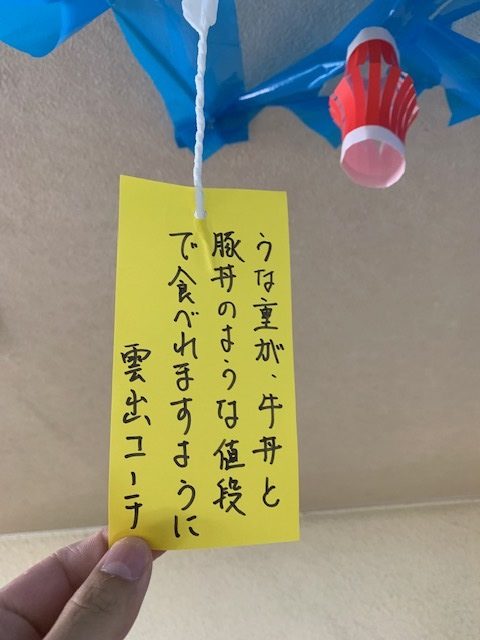 うな重が、牛丼と
豚丼のような値段
で食べれますように
雲出コーチ